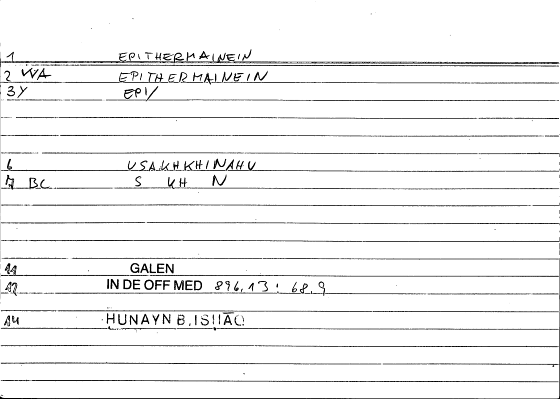 1 EPITHERMAINEIN
2 VVA EPITHERMAINEIN
3Y EPI/
6 USAKHKHINAHU
7 BC S KH N
11 GALEN
12 IN DE OFF MED 896,13 : 68,9
14 HUNAYN B. ISḤĀQ